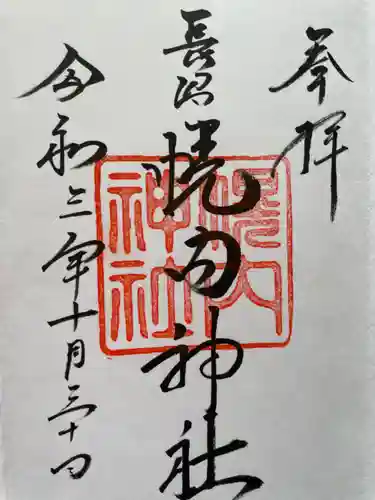 奉拝
長沼
幌内神社
令和三年十月三十日
幌内
神社